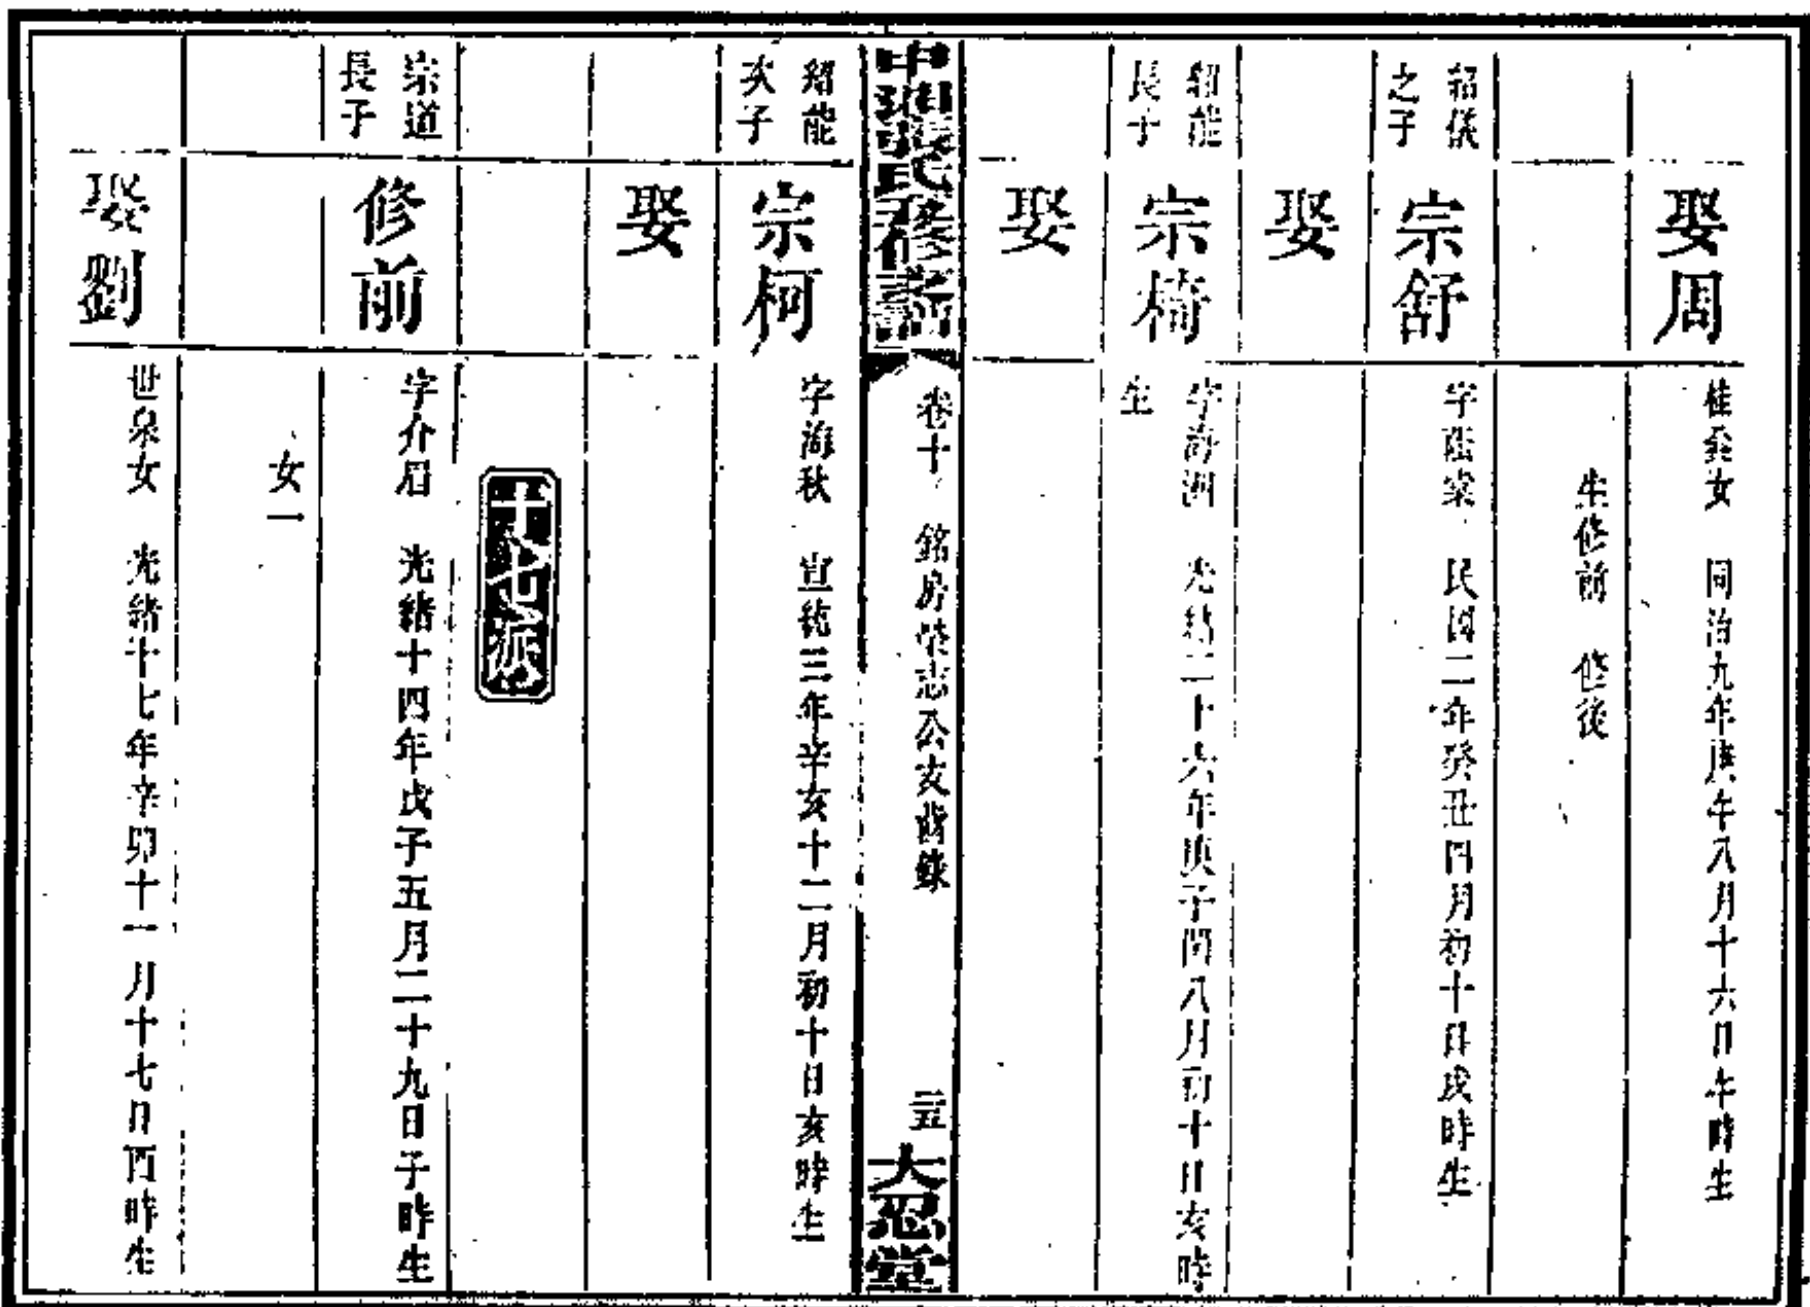 娶周
桂㕘女　同治九年庚午八月十六日午時生
生修前　修後
紹儀之子
宗舒
字蔭棠　民國二年癸丑四月初十日戌時生
娶
紹能長子
宗椅
字海洲　光緒二十六年庚子閏八月初十日亥時生
娶
氏修譜
卷十　銘房榮志公支齒錄
二五
大忍堂
紹能次子
宗柯
字海秋　宣統三年辛亥十二月初十日亥時生
娶
十七派
宗道長子
修前
字介眉　光緒十四年戊子五月二十九日子時生
女一
娶劉
世泉女　光緒十七年辛卯十一月十七日酉時生